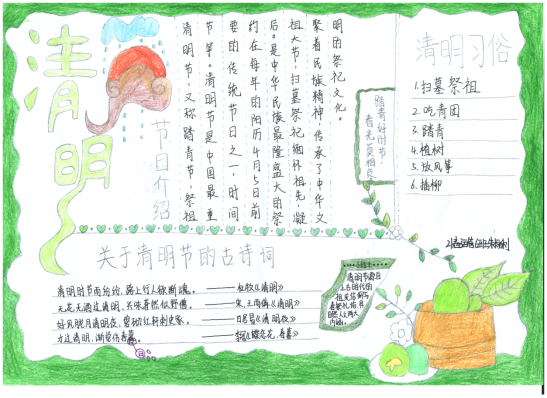 清明
节日介绍
清明节,又称踏青节,祭祖
节等。清明节是中国最重
要的传统节日之一,时间
约在每年的阳历4月5日前
后。是中华民族最隆盛大的祭
祖大节,扫墓祭祀、缅怀祖先,凝
聚着民族精神,传承了中华文
明的祭祀文化。
踏青好时节,
清明习俗
1.扫墓祭祖
2.吃青团
3.踏青
4.植树
5.放风筝
6.插柳
关于清明节的古诗词
清明时节雨纷纷,路上行人欲断魂。——杜牧《清明》
无花无酒过清明,兴味萧然似野僧。——宋,王禹偁《清明》
好风胧月清明夜,碧砌红轩刺史家。——白居易《清明夜》
清明节源自